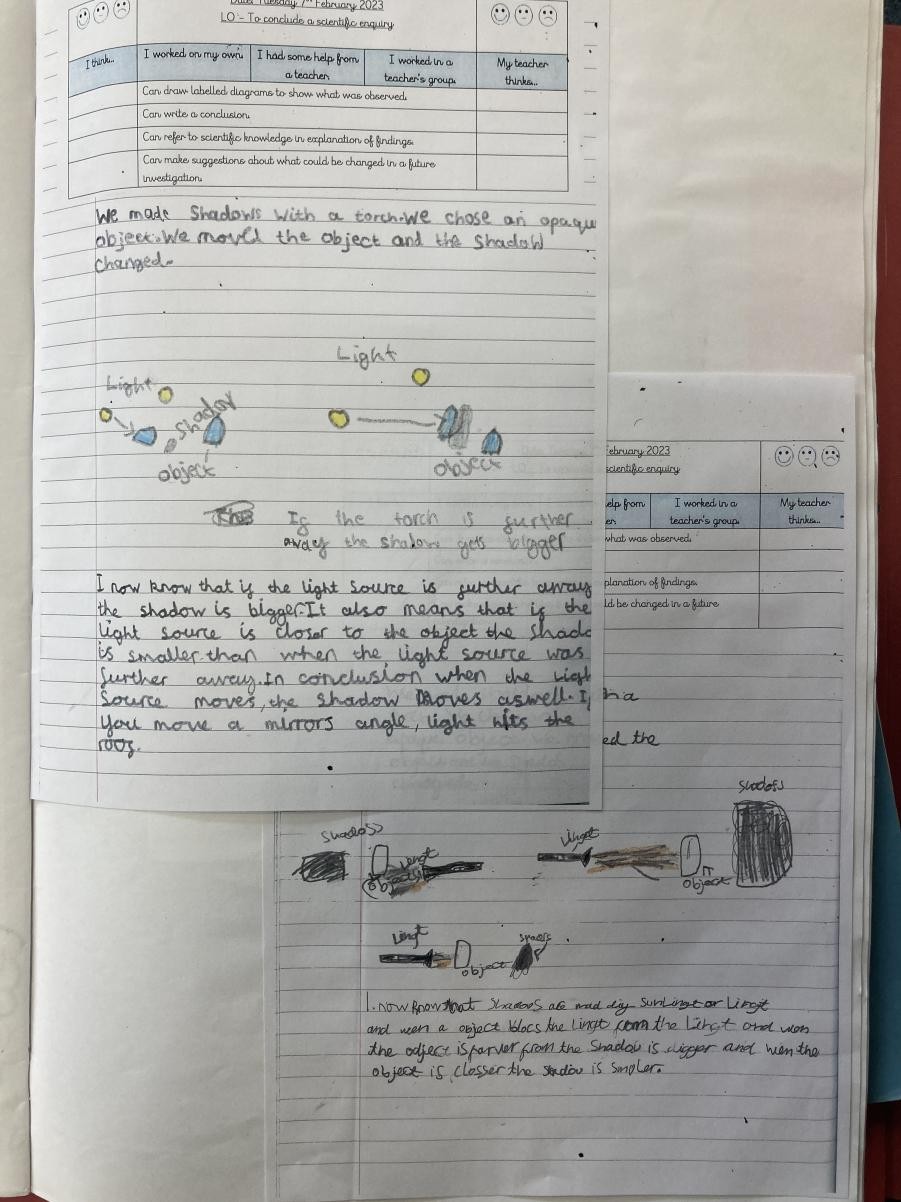 Date: Tuesday 7th February 2023
LO:- To conclude a scientific enquiry
I think...
I worked on my own.
I had some help from
a teacher.
I worked in a
teacher's group.
My teacher
thinks...
Can draw labelled diagrams to show what was observed.
Can write a conclusion.
Can refer to scientific knowledge in explanation of findings.
Can make suggestions about what could be changed in a future
investigation.
We made Shadows with a torch.We chose an opaque
object.We moved the object and the Shadow
changed.
Light
Light
Shadow
object
object
If the torch is further
away the shadow gets bigger
I now know that if the light source is further away
the shadow is bigger.It also means that if the
light source is closer to the object the shado
is smaller than when the light source was
further away.In conclusion when the Ligh
Source moves, the Shadow moves aswell. I
You move a mirrors angle, light hits the
roof.
ebruary 2023
scientific enquiry
elp from
er.
I worked in a
teacher's group.
My teacher
thinks...
what was observed.
planation of findings.
ld be changed in a future
h a
ed the
Shadoss
Lengt
object
Linget
object
Lingt
object
I now know that Shadoos are mad diy SunLinget or Linget
and wen a object blocs the Lingt from the Lingt and wen
the odject is farver from the Shadou is digger and wen the
object is closser the shadou is smoler.